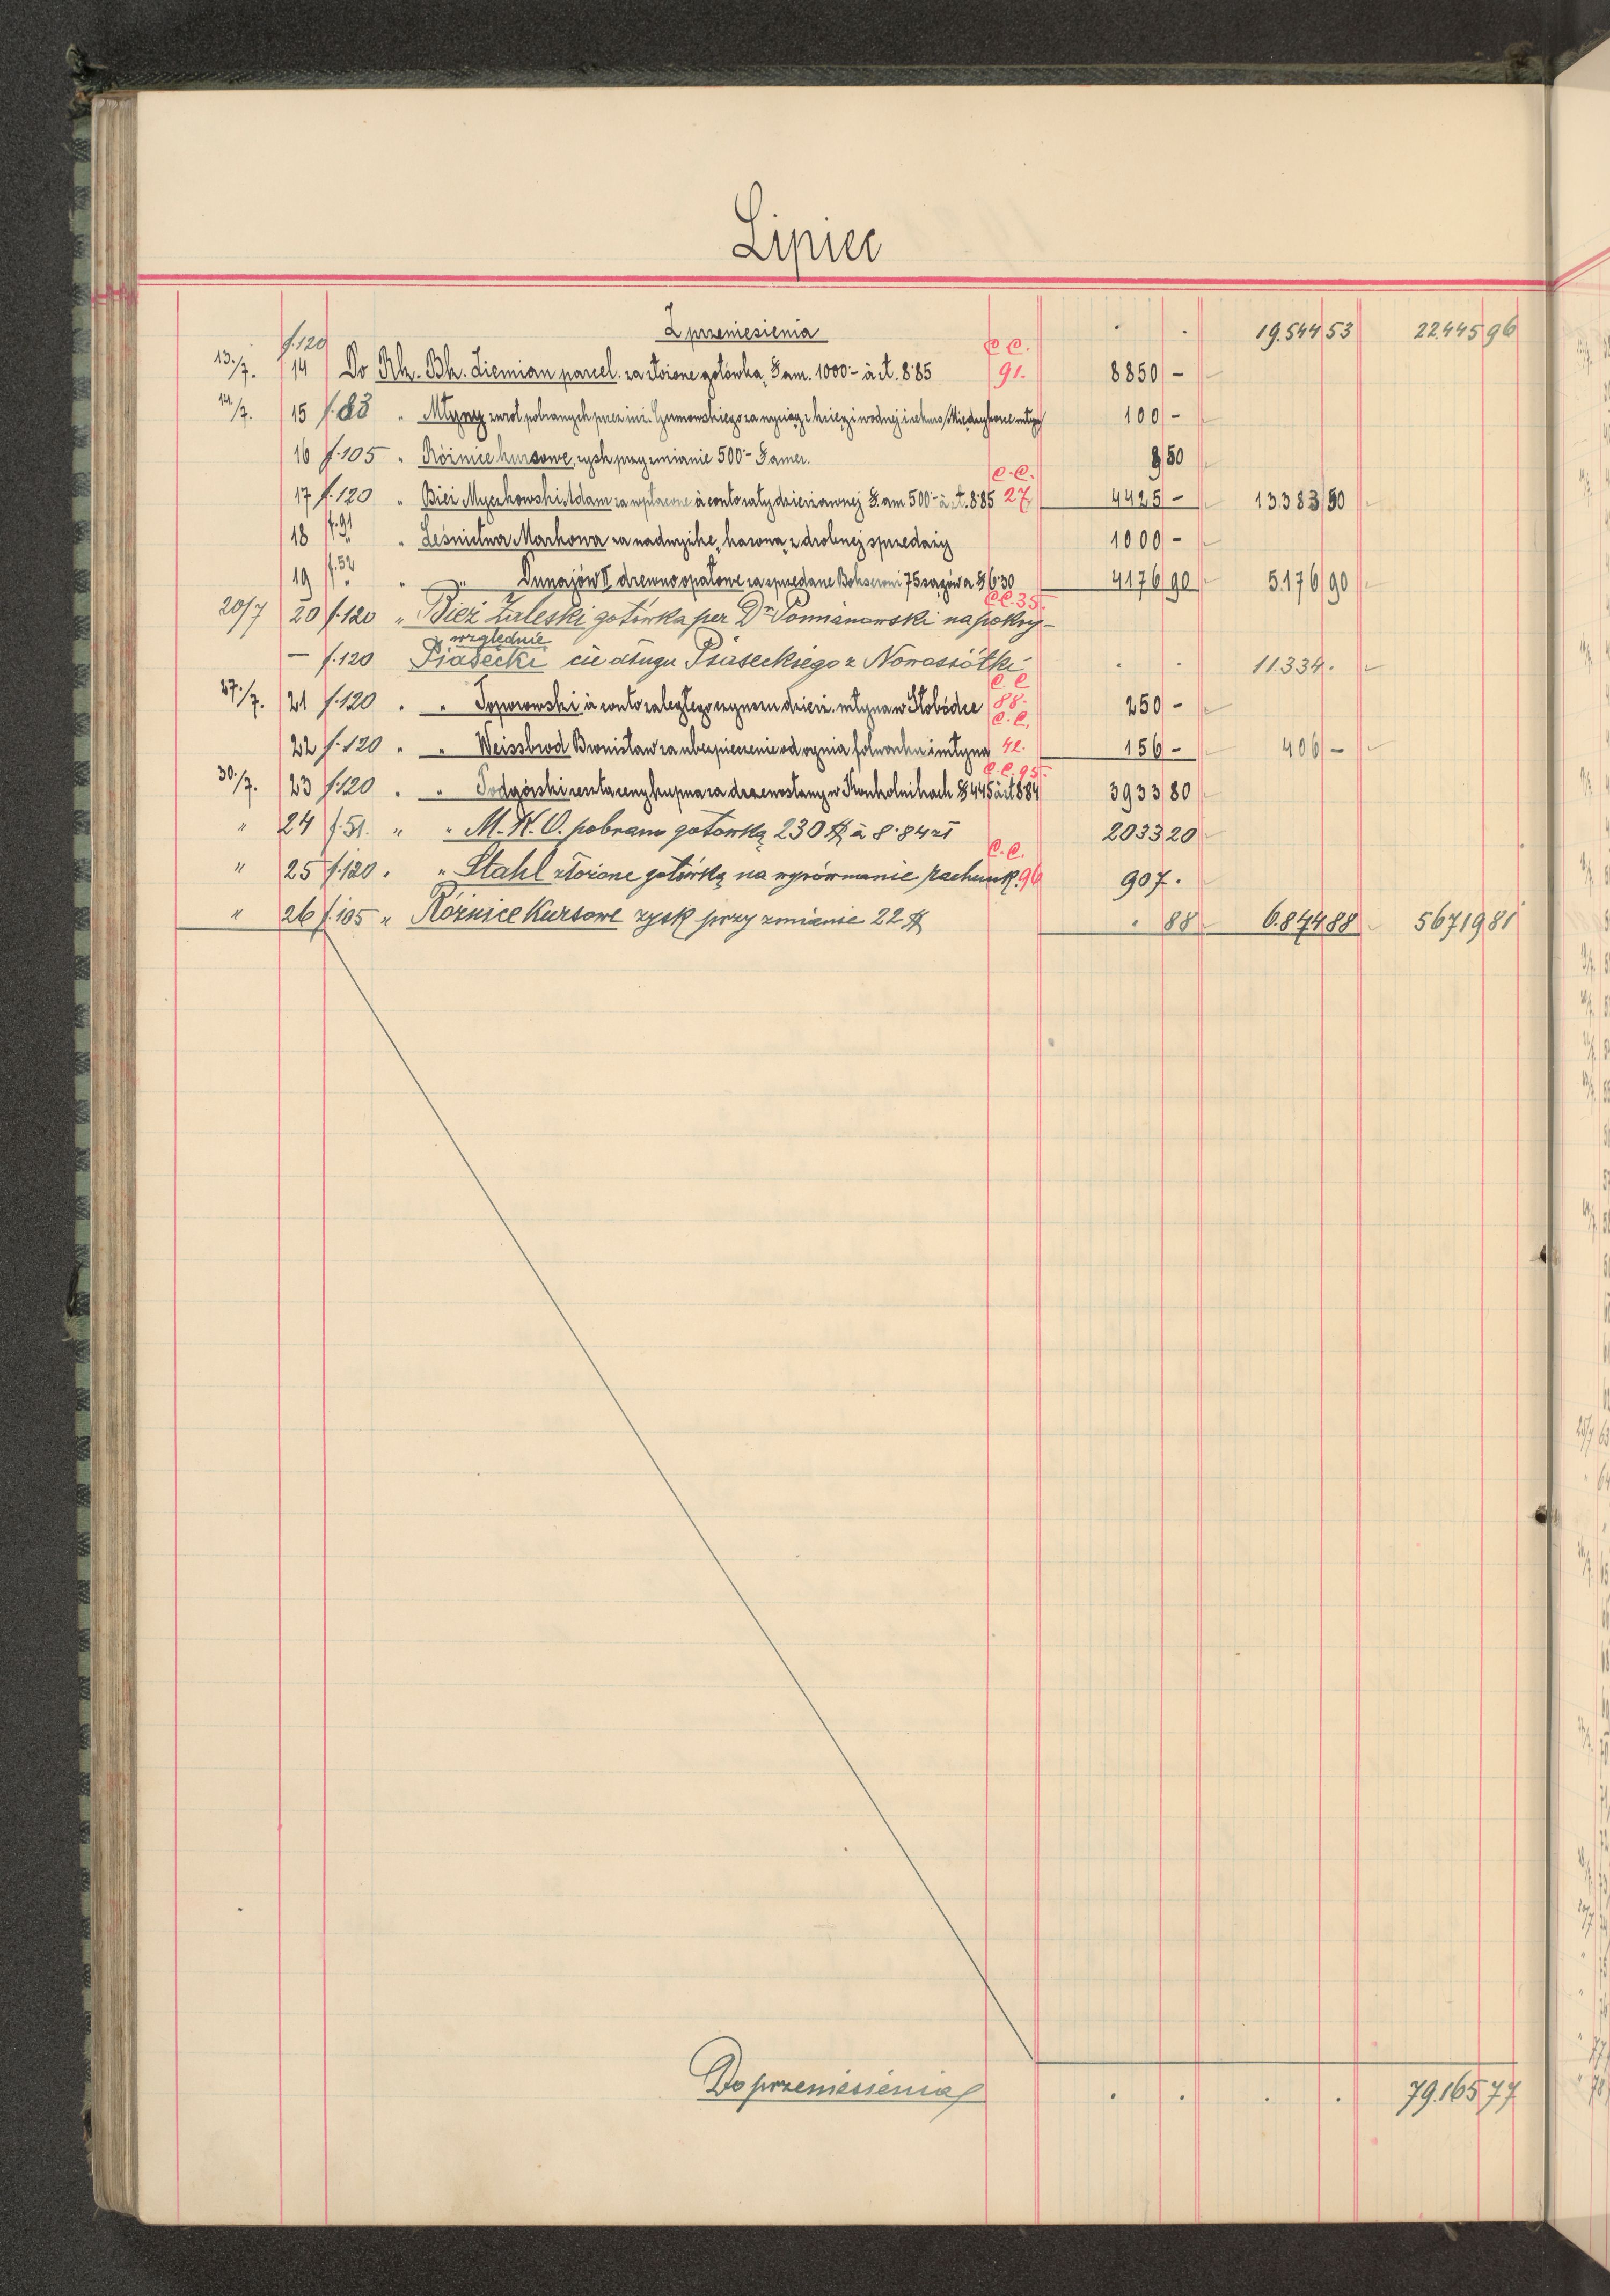 Lipiec
Z przeniesienia . . 19.544 53 22.445 96
13./7. f.120 14 Do Rk. Bk. Ziemian parcel. za złożoną gotówką $ am. 1000·- à zł. 8·85 C.C. 91. 8850 -
14./7. 15 f.83 " Młyny zwrot pobranych przez inż. Gumowskiego za 100 -
16 f.105 " Różnice kursowe, zysk przy zmianie 500·- $ amer. 8 50
17 f.120 " Bież. Myczkowski Adam za wpłacone à conto raty dzierżawnej $ am. 500·- à zł. 8·85 C.C. 27 4425 - 13383 50
18 f.91 " Leśnictwo Markowa za nadwyżkę kasową z drobnej sprzedaży 1000 -
19 f.52 " " Dunajów II drewno opałowe za sprzedane Bokserowi 75 sągów a $ 6·30 4176 90 5.176 90
20/7 20 f.120 " Bież Zaleski gotówka per Dr Poznanowski na pokry- C.C. 35.
względnie
— f.120 Piasecki cie długu Piaseckiego z Nowosiółki . . 11.334.
27./7. 21 f.120 " " Toporowski à conto zaległego czynszu dzierż. młyna w Słobódce C.C. 88. 250 -
22 f.120 " " Weissbrod Bronisław za ubezpieczenie od ognia folwarku i młyna C.C. 42. 156 - 406 -
30./7. 23 f.120 " " Podgórski reszta ceny kupna za drzewostany w Konkolnikach $ 445 à zł 8·84 C.C. 95. 3933 80
" 24 f.51. " " M.K.O. pobrano gotówką 230 $ à 8·84 zł 2033 20
" 25 f.120. " Stahl złożone gotówką na wyrównanie rachunk. C.C. 96 907.
" 26 f.105 " Różnice Kursowe zysk przy zmianie 22 $ . 88 6.874 88 56719 81
Do przeniesienia . . . . 79.165 77